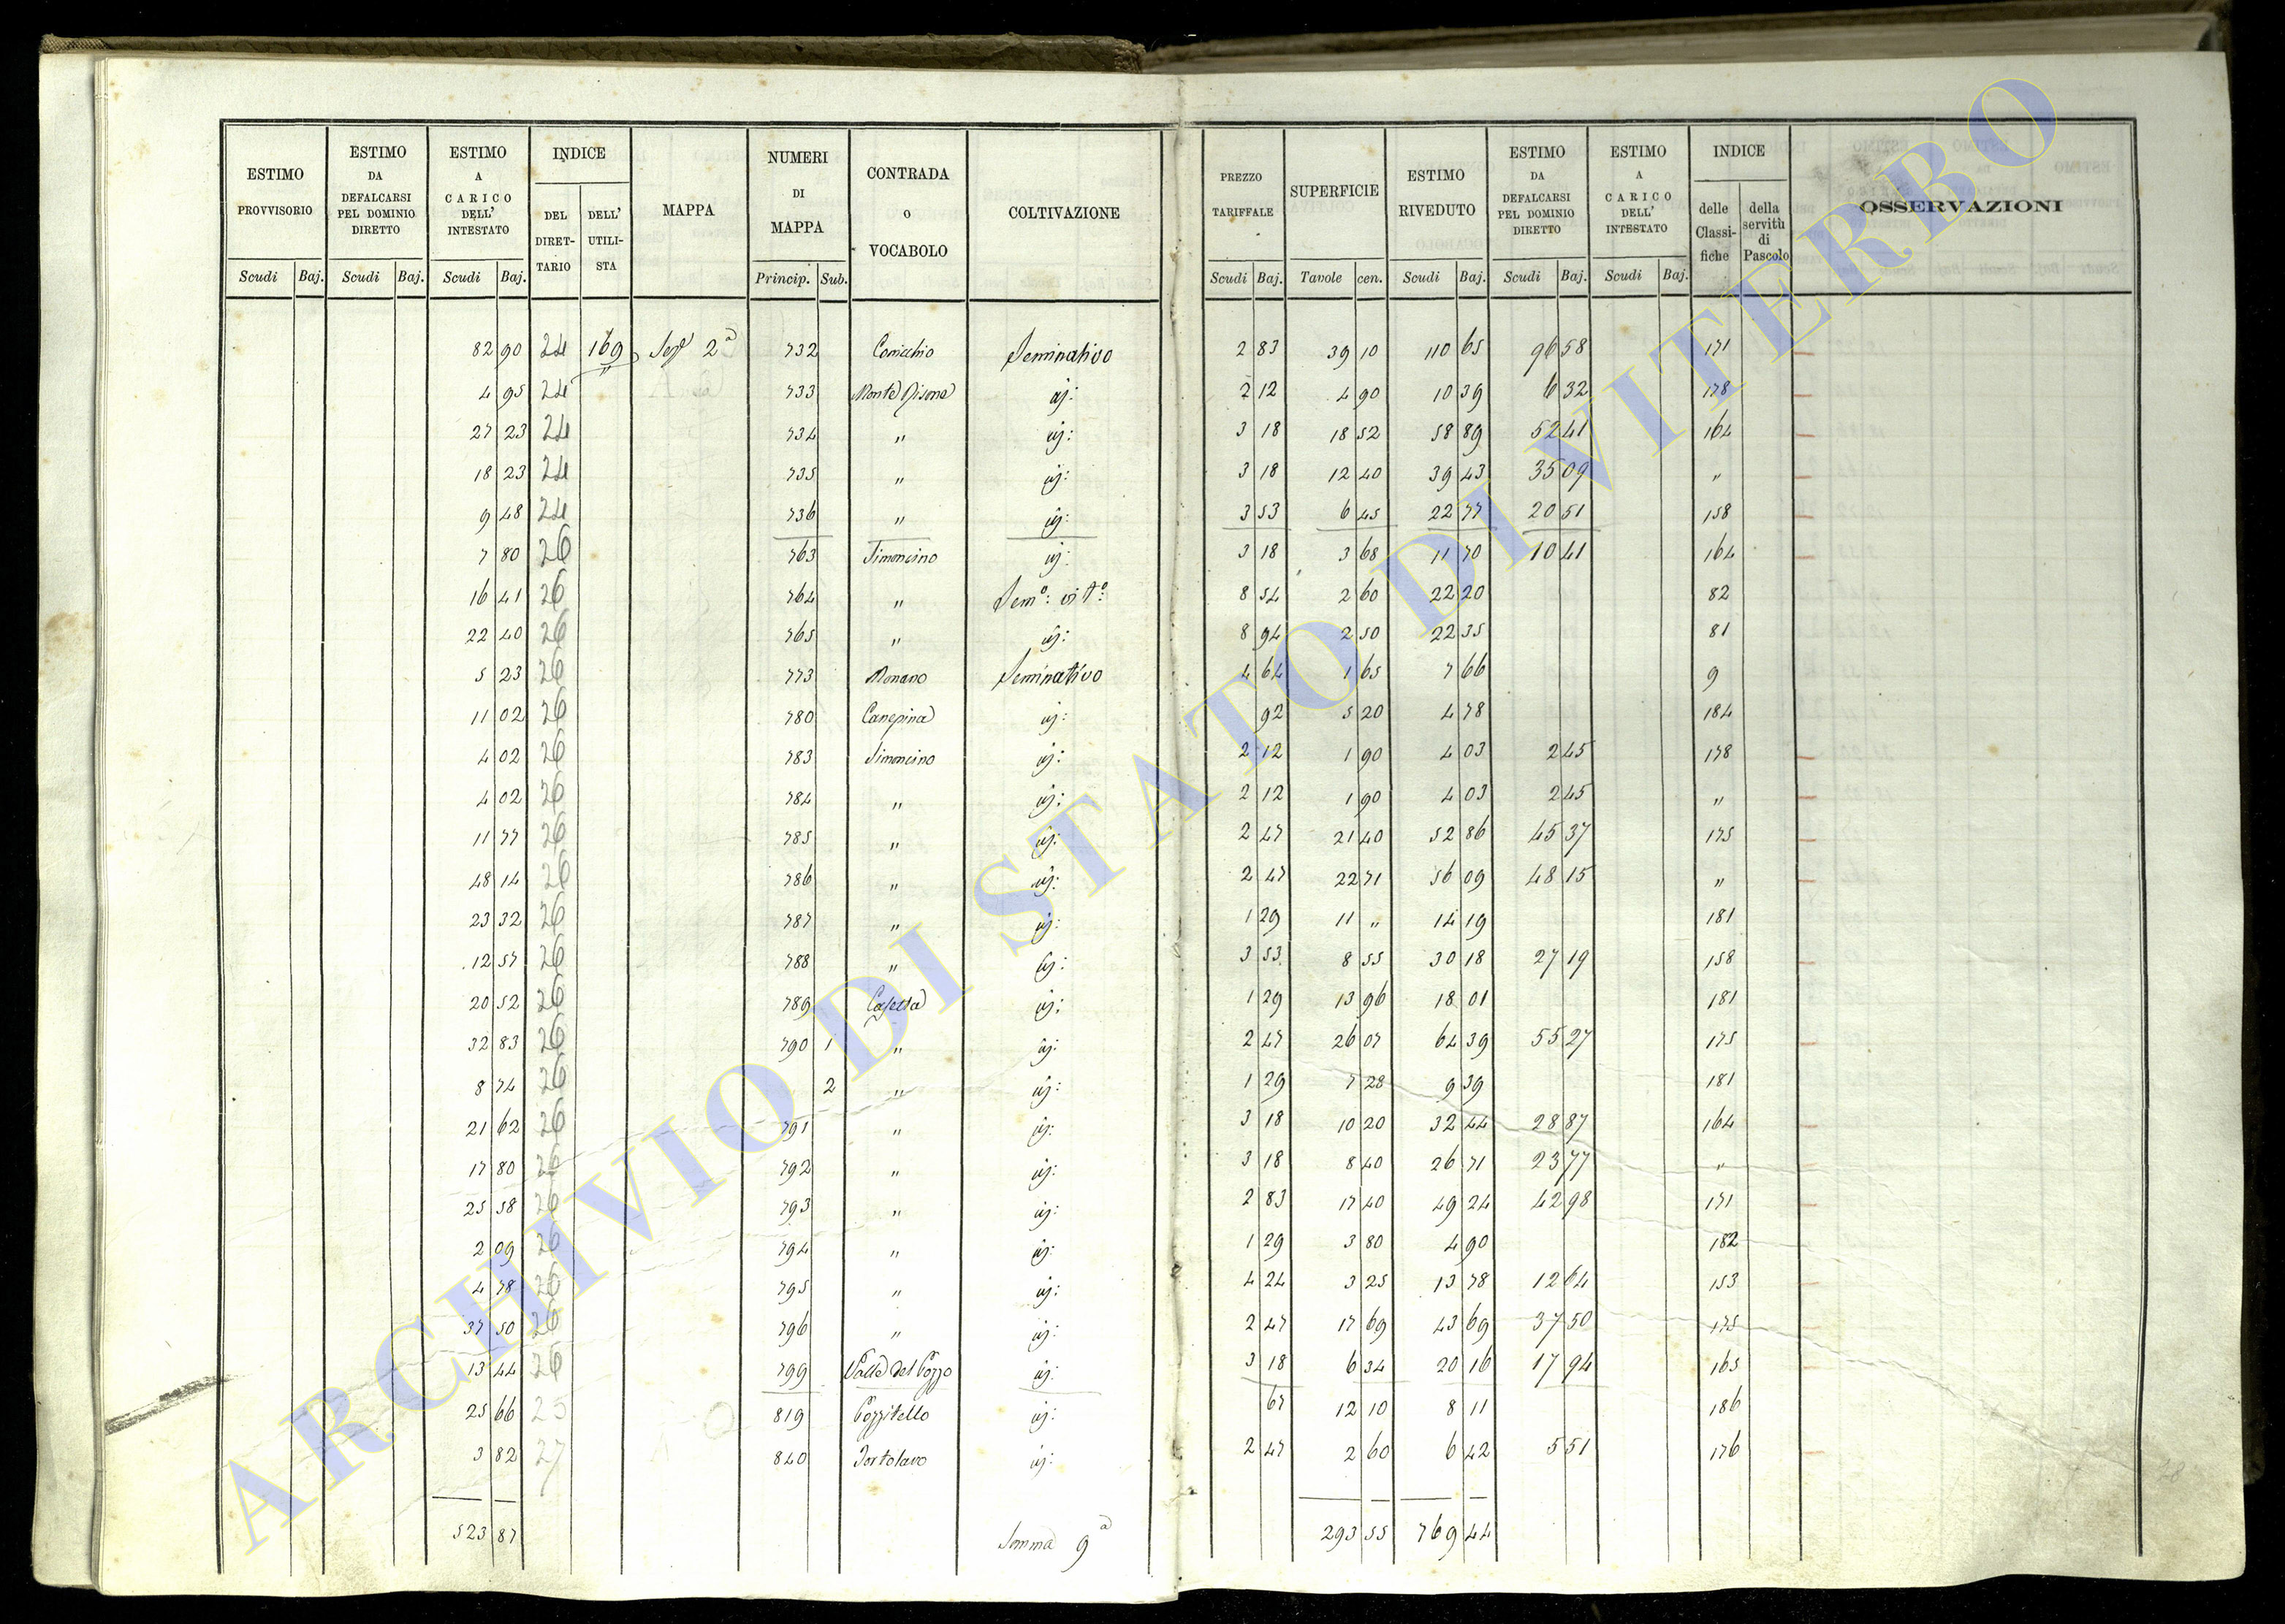 ESTIMO PROVVISORIO Scudi Baj. | ESTIMO DA DEFALCARSI PEL DOMINIO DIRETTO Scudi Baj. | ESTIMO A CARICO DELL' INTESTATO Scudi Baj. | INDICE DEL DIRETTARIO | DELL' UTILISTA | MAPPA | NUMERI DI MAPPA Princip. Sub. | CONTRADA o VOCABOLO | COLTIVAZIONE | PREZZO TARIFFALE Scudi Baj. | SUPERFICIE Tavole cen. | ESTIMO RIVEDUTO Scudi Baj. | ESTIMO DA DEFALCARSI PEL DOMINIO DIRETTO Scudi Baj. | ESTIMO A CARICO DELL' INTESTATO Scudi Baj. | INDICE delle Classifiche | della servitù di Pascolo | OSSERVAZIONI
82 90 24 169 2ª 732 Seminativo 2 83 39 10 110 65 96 58 171
4 95 24 " 733 Monte 2 12 4 90 10 39 6 32 178
27 23 24 734 " 3 18 18 52 58 89 52 41 164
18 23 24 735 " 3 18 12 40 39 43 35 09 "
9 48 24 736 " 3 53 6 45 22 77 20 51 158
7 80 26 763 Simoncino 3 18 3 68 11 70 10 41 164
16 41 26 764 " Semº: vitº: 8 54 2 60 22 20 82
22 40 26 765 " 8 94 2 50 22 35 81
5 23 26 773 Monano Seminativo 4 64 1 65 7 66 9
11 02 26 780 Canepina 92 5 20 4 78 184
4 02 26 783 Simoncino 2 12 1 90 4 03 2 45 178
4 02 26 784 " 2 12 1 90 4 03 2 45 "
11 77 26 785 " 2 47 21 40 52 86 45 37 175
48 14 26 786 " 2 47 22 71 56 09 48 15 "
23 32 26 787 " 1 29 11 " 14 19 181
12 57 26 788 " 3 53 8 55 30 18 27 19 158
20 52 26 789 Casetta 1 29 13 96 18 01 181
32 83 26 790 1 " 2 47 26 07 64 39 55 27 175
8 74 26 2 " 1 29 7 28 9 39 181
21 62 26 791 " 3 18 10 20 32 44 28 87 164
17 80 26 792 " 3 18 8 40 26 71 23 77 "
25 58 26 793 " 2 83 17 40 49 24 42 98 171
2 09 26 794 " 1 29 3 80 4 90 182
4 78 26 795 " 4 24 3 25 13 78 12 64 153
37 50 26 796 " 2 47 17 69 43 69 37 50 175
13 44 26 799 Valle del Pozzo 3 18 6 34 20 16 17 94 165
25 66 25 819 Pozzitello 67 12 10 8 11 186
3 82 27 840 Tortolavo 2 47 2 60 6 42 5 51 176
523 87 Somma 9ª 293 55 769 44
28
ARCHIVIO DI STATO DI VITERBO